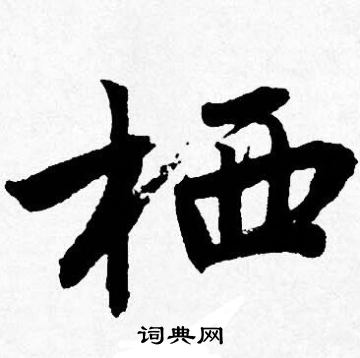 栖
词典网